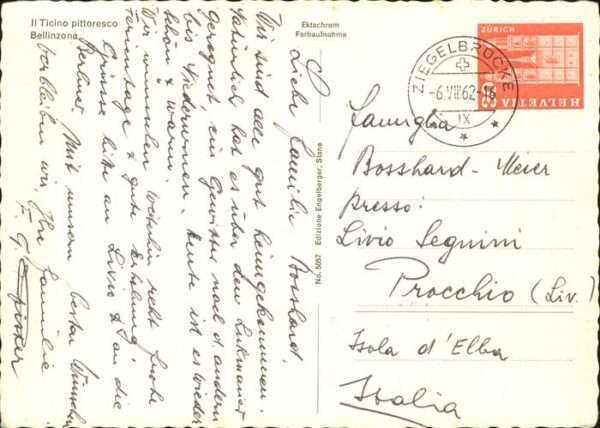 Il Ticino pittoresco
Bellinzona
Ektachrom
Farbaufnahme
Liebe Familie Bosshard,
Wir sind alle gut heimgekommen.
Natürlich hat es über den Lukmanier
geregnet, ein Gewitter nach d. andern
bis Niederurnen. Heute ist es wieder
schön & warm.
Wir wünschen weiterhin recht frohe
Ferientage & gute Erholung!
Grüsse bitte an Livio & an die
Berliner. Mit unsern besten Wünschen
verbleiben wir, Ihre Familie
No. 5057 Edizione Engelberger, Stans
ZIEGELBRÜCKE
-6.VIII.62-16
IX
ZÜRICH
HELVETIA
Famiglia
Bosshard-Meier
presso:
Livio Segnini
Procchio (Liv.)
Isola d'Elba
Italia